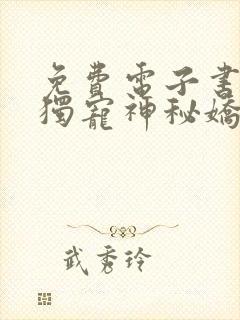 免費電子書
獨寵神秘嬌
武秀玲